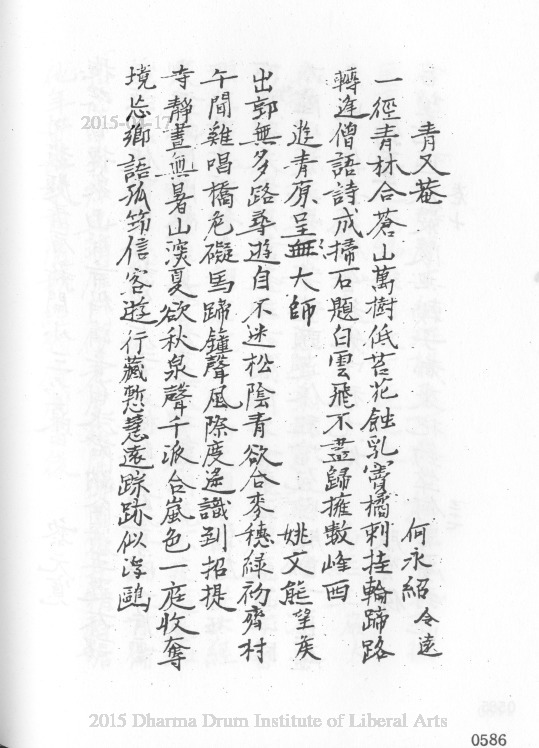 青又菴
何永紹令遠
一徑青林合蒼山萬樹低苔花蝕乳竇橘刺挂輪蹄路
轉逢僧語詩成掃石題白雲飛不盡歸擁數峰西
遊青原呈無大師
姚文熊望侯
出郭無多路尋遊自不迷松陰青欲合麥穗綠初齊村
午聞雞唱橋危礙馬蹄鐘聲風際度遙識到招提
寺靜晝無暑山深夏欲秋泉聲千派合嵐色一庭收奪
境忘鄉語孤筇信客遊行藏慙慧遠踪跡似浮鷗
2015-01-17
2015 Dharma Drum Institute of Liberal Arts
0586